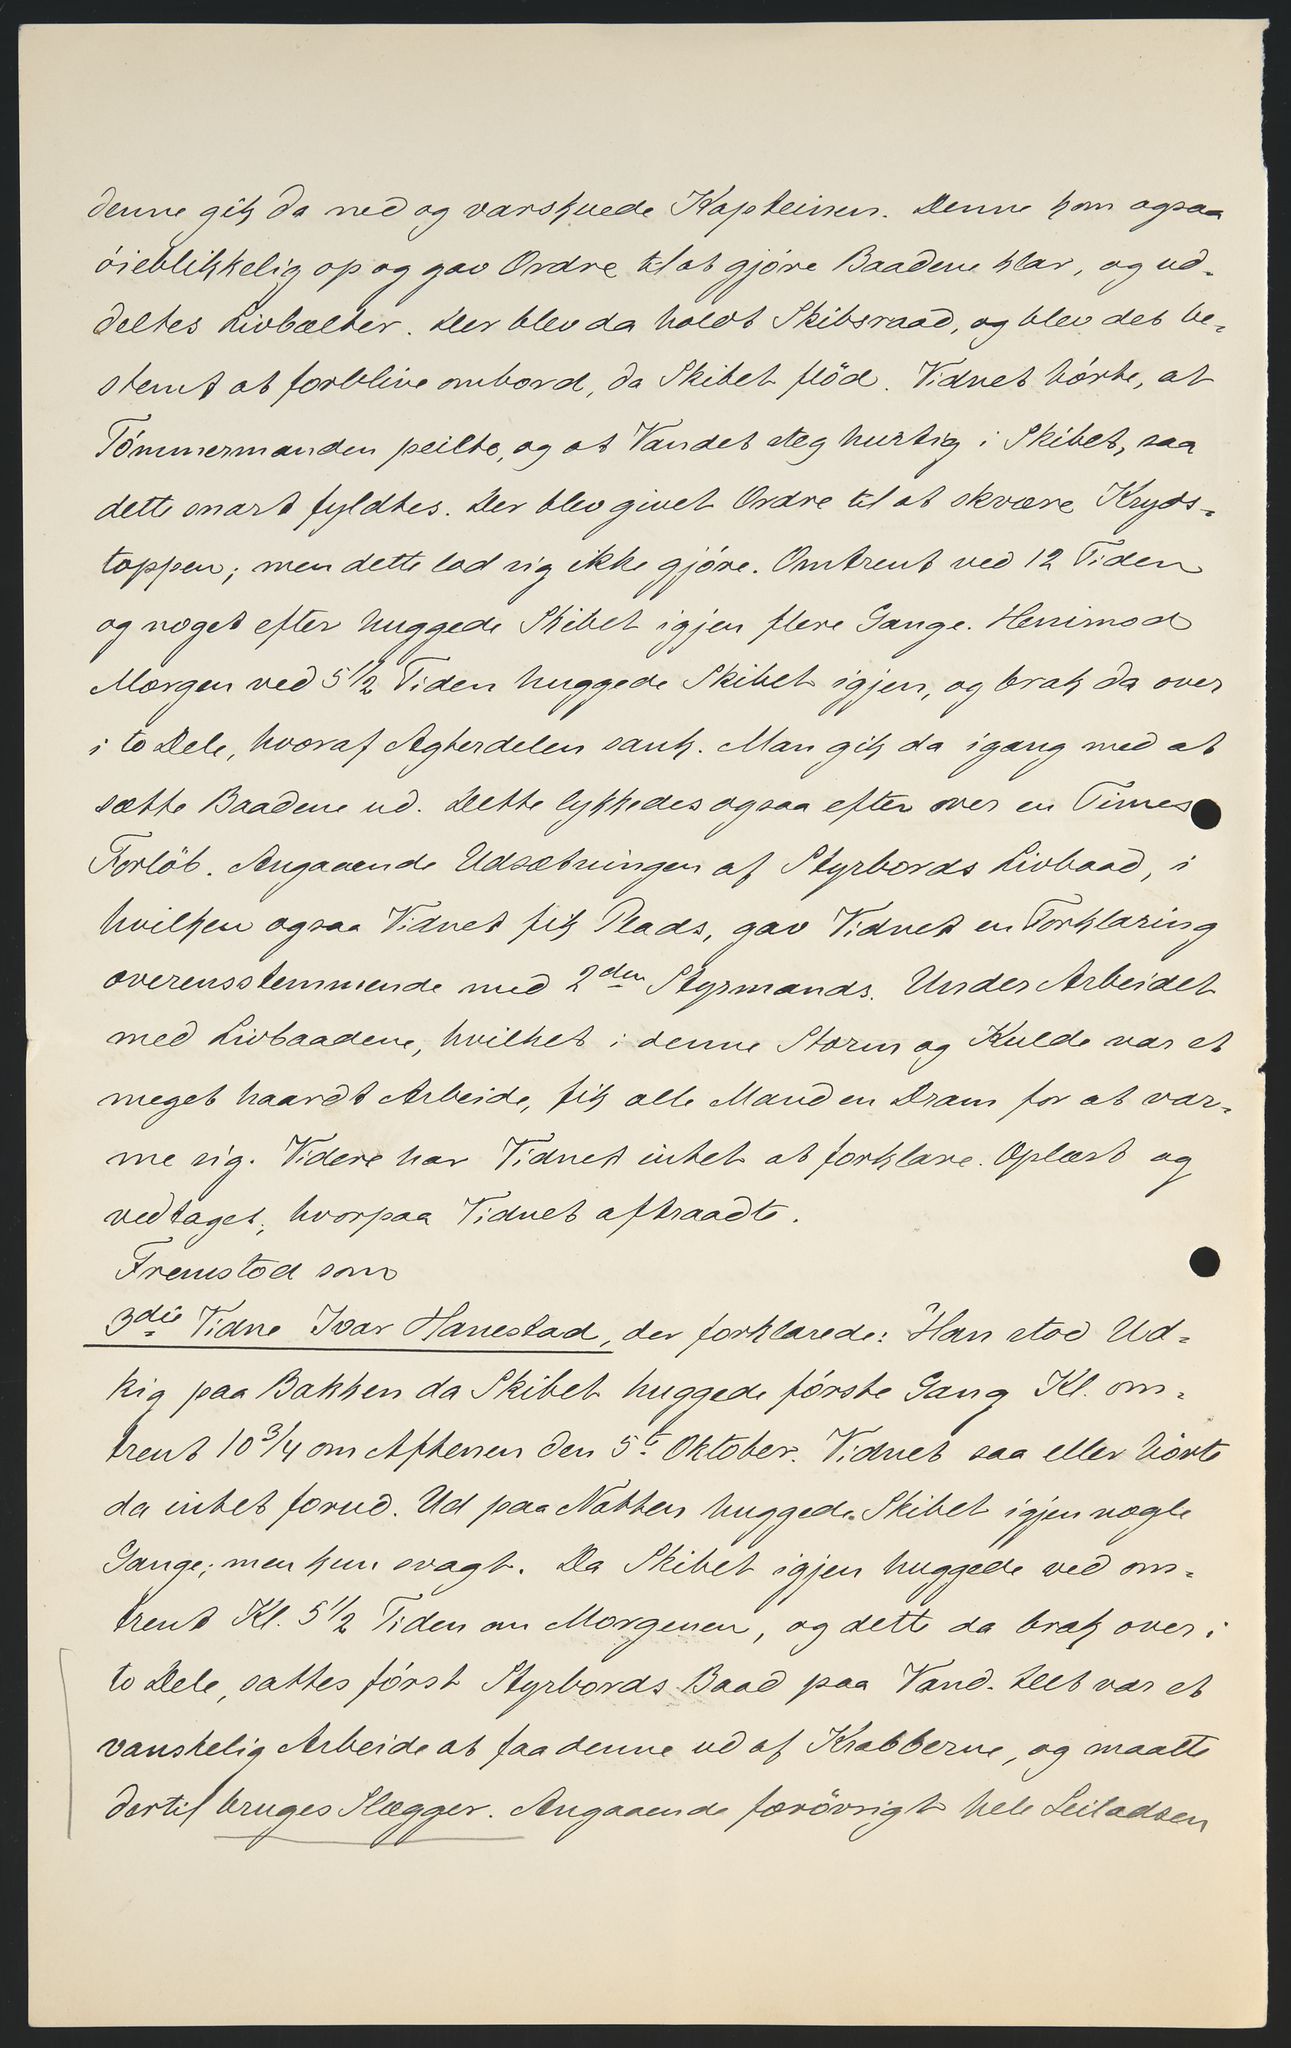 denne gik da ned og varskuede Kapteinen. Denne kom ogsaa
øieblikkelig op og gav Ordre til at gjøre Baadene klar, og ud-
deltes Livbælter. Der blev da holdt Skibsraad, og blev det be-
stemt at forblive ombord, da Skibet flöd. Vidnet hörte, at
Tömmermanden peilte, og at Vandet steg hurtig i Skibet, saa
dette snart fyldtes. Der blev givet Ordre til at skvære Kryds-
toppen; men dette lod sig ikke gjöre. Omtrent ved 12 Tiden
og noget efter huggede Skibet igjen flere Gange. Henimod
Morgen ved 5 1/2 Tiden huggede Skibet igjen, og brak da over
i to Dele, hvoraf Agterdelen sank. Man gik da igang med at
sætte Baadene ud. Dette lykkedes ogsaa efter over en Times
Forlöb. Angaaende Udsætningen af Styrbords Livbaad, i
hvilken ogsaa Vidnet fik Plads, gav Vidnet en Forklaring
overensstemmende med 2den Styrmands. Under Arbeidet
med Livbaadene, hvilket i denne Storm og Kulde var et
meget haardt Arbeide, fik alle Mand en Dram for at var-
me sig. Videre har Vidnet intet at forklare. Oplæst og
vedtaget, hvorpaa Vidnet aftraadte.
Fremstod som
3die Vidne Ivar Hanestad, der forklarede: Han stod Ud-
kig paa Bakken da Skibet huggede förste Gang Kl. om-
trent 10 3/4 om Aftenen den 5te Oktober. Vidnet saa eller hörte
da intet forud. Ud paa Natten huggede Skibet igjen nogle
Gange; men kun svagt. Da Skibet igjen huggede ved om-
trent Kl. 5 1/2 Tiden om Morgenen, og dette da brak over i
to Dele, sattes först Styrbords Baad paa Vand. Det var et
vanskelig Arbeide at faa denne ud af Krabberne, og maatte
dertil bruges Slægger. Angaaende forövrigt hele Seiladsen